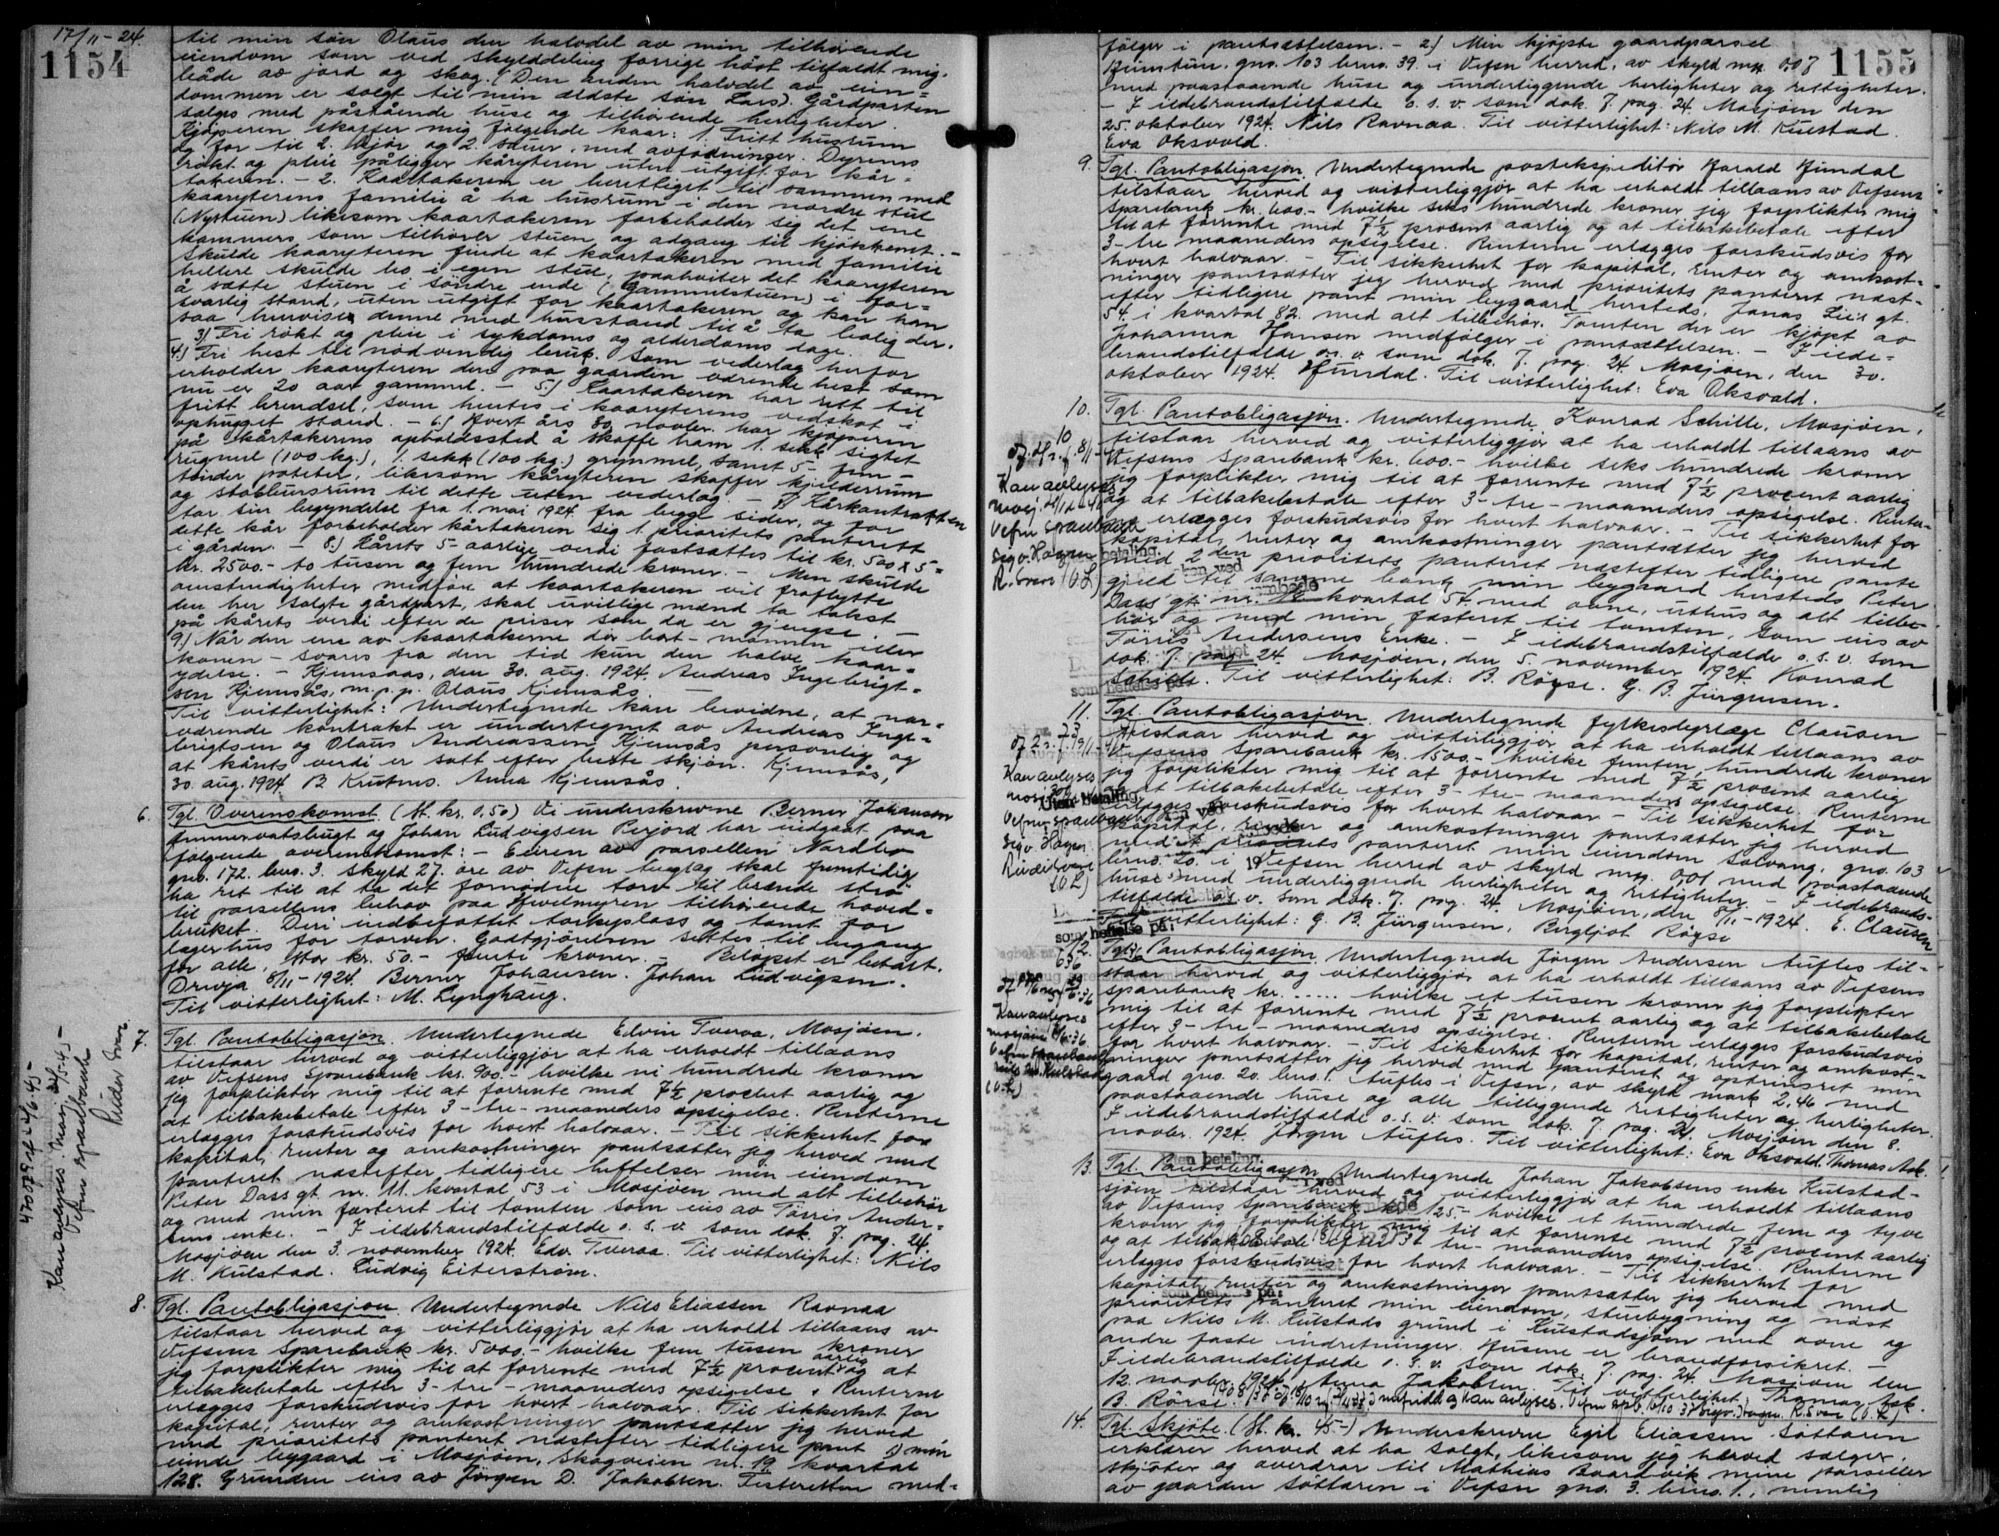 17/11-24.
1154
til min sön Olaus den halvdel av min tilhörende
eiendom som ved skylddeling forrige höst tilfaldt mig,
både av jord og skog. (Den anden halvdel av eien=
dommen er solgt til min ældste sön Lars). Gårdparten
sælges med påstående huse og tilhörende herligheter.
Kjöperen skaffer mig fölgende kaar: 1. Fritt husrum
og for til 2. kjör og 2 sauer, med avfödninger. Dyrenes
rökt og pleie påligger kåryteren uten utgift for kår=
takeren. - 2. Kaartakeren er berettiget til sammen med
kaaryterens familie å ha husrum i den nordre stue
(Nystuen) likesom kaartakeren forbeholder sig det ene
kammers som tilhörer stuen og adgang til kjökkenet. -
Skulde kaaryteren finde at kaartakeren med familie
hellere skulde bo i egen stue, paahviler det kaaryteren
å sætte stuen i söndre ende (Gammelstuen) i for=
svarlig stand, uten utgift for kaartakeren og kan han
saa henvise denne med husstand til å ta bolig der.
- 3) Fri rökt og pleie i sykdoms og alderdoms dage. -
4.) Fri hest til nödvendig bruk. Som vederlag herfor
erholder kaaryteren den paa gaarden værende hest som
nu er 20 aar gammel. - 5.) Kaartakeren har rett til
fritt brendsel, som hentes i kaaryterens vedskot i
ophugget stand. - 6.) Hvert års 30. novbr. har kjöperen
på kårtakerens opholdssted å skaffe ham 1. sekk sigtet
rugmel (100 kg.), 1. sekk (100 kg.) grynmel, samt 5 - fem -
tönder poteter, likesom kåryteren skaffer kjelderrum
og stabbursrum til dette uten vederlag. - 7.) Kårkontrakten
tar sin begyndelse fra 1. mai 1924 fra begge sider, og for
dette kår forbeholder kårtakeren sig 1. prioritets panterett
i gården. - 8.) Kårets 5-aarlige verdi fastsættes til kr. 500 x 5 =
kr. 2500.- to tusen og fem hundrede kroner. - Men skulde
omstendigheter medföre at kaartakeren vil fraflytte
den her solgte gårdpart, skal uvillige mænd ta takst
på kårets verdi efter de priser som da er gjengse. -
9.) Når den ene av kaartakerne dör bort - mannen eller
konen - svares fra den tid kun den halve kaar=
ydelse. - Kjemsaas, den 30. aug. 1924. Andreas Ingebrigt=
sen Kjemsås, m.p.p. Olaus Kjemsås.
Til vitterlighet: Undertegnede kan bevidne, at nær=
værende kontrakt er undertegnet av Andreas Inge=
brigtsen og Olaus Andreassen Kjemsås personlig og
at kårets verdi er satt efter beste skjön. Kjemsås,
30. aug. 1924. B Krutnes. Anna Kjemsås.
6. Tgl. Overenskomst. (St. kr. 0,50) Vi underskrevne Berner Johansen
Finnervatsbugt og Johan Ludvigsen Perjord har indgaat paa
fölgende overenskomst: - Eieren av parsellen Nordbo
gno. 172. bno. 3. skyld 27. öre av Vefsn tinglag skal fremtidig
ha ret til at ta det fornødne torv til brænde strö
til parsellens behov paa Hvelmyren tilhörende hoved=
bruket. Deri indbefattet torkeplass og tomt for
lagerhus for torven. Godtgjörelsen settes til engang
for alle, stor kr. 50.- femti kroner. - Belöpet er betalt.
Drevja 8/11-1924. Berner Johansen. Johan Ludvigsen.
Til vitterlighet: M. Lynghaug.
7. Tgl. Pantobligasjon. Undertegnede Edvin Tveraa, Mosjöen.
tilstaar herved og vitterliggjör at ha erholdt tillaans
av Vefsens Sparebank kr. 900.- hvilke ni hundrede kroner
jeg forplikter mig til at forrente med 7½ procent aarlig og
at tilbakebetale efter 3 - tre - maaneders opsigelse. Renterne
erlægges forskudsvis for hvert halvaar. - Til sikkerhet for
kapital, renter og omkostninger pantsætter jeg herved med
panteret næstefter tidligere heftelser min eiendom
Peter Dass gt. nr. 11. kvartal 53 i Mosjöen med alt tilbehör
og med min fæsteret til tomten som eies av Törris Ander=
sens enke. - I ildebrandstilfælde o. s. v. som dok. 7. pag. 24.
Mosjöen den 3. november 1924. Edv. Tveraa. Til vitterlighet: Nils
M. Kulstad. Ludvig Eiterström.
Kan avlyses. Mosj. 31/5-45 -
Vefsn sparebank
470 09 4/6-45 -
8. Tgl. Pantobligasjon. Undertegnede Nils Eliassen Ravnaa
tilstaar herved og vitterliggjör at ha erholdt tillaans av
Vefsens Sparebank kr. 5000.- hvilke fem tusen kroner
jeg forplikter mig til at forrente med 7½ procent aarlig og at
tilbakebetale efter 3 - tre - maaneders opsigelse. Renterne
erlægges forskudsvis for hvert halvaar. Til sikkerhet for
kapital, renter og omkostninger pantsætter jeg herved
med prioritets panteret næstefter tidligere pant 1) min
eiende bygaard i Mosjöen, Skogveien nr. 19 kvartal
128. Grunden eies av Jörgen D. Jakobsen. Festeretten med=
1155
fölger i pantsættelsen. - 2.) Min kjöpte gaardparsel
Heimtun. gno. 103 brno. 39. i Vefsn herred, av skyld mrk 0,07
med paastaaende huse og underliggende herligheter og rettigheter.
- I ildebrandstilfælde o. s. v. som dok. 7. pag. 24. Mosjöen den
25. oktober 1924. Nils Ravnaa. Til vitterlighet: Nils M. Kulstad.
Eva Oksvold.
9. Tgl. Pantobligasjon. Undertegnede postekspeditör Harald Hundal
tilstaar herved og vitterliggjör at ha erholdt tillaans av Vefsens
Sparebank kr. 600.- hvilke seks hundrede kroner jeg forplikter mig
til at forrente med 7½ procent aarlig og at tilbakebetale efter
3 - tre maaneders opsigelse. Renterne erlægges forskudsvis for
hvert halvaar. - Til sikkerhet for kapital, renter og omkost=
ninger pantsætter jeg herved med prioritets panteret næst=
efter tidligere pant min bygaard hersteds, Jonas Lies gt.
54. i kvartal 82. med alt tilbehör. Tomten der er kjöpt av
Johanna Hansen medfölger i pantsættelsen. - I ilde=
brandstilfælde o. s. v. som dok. 7. pag. 24. Mosjöen, den 30.
oktober 1924. Hundal. Til vitterlighet: Eva Oksvold.
10. Tgl. Pantobligasjon. Undertegnede Konrad Schille, Mosjöen,
tilstaar herved og vitterliggjör at ha erholdt tillaans av
Vefsens Sparebank kr. 600.- hvilke seks hundrede kroner
jeg forplikter mig til at forrente med 7½ procent aarlig
og at tilbakebetale efter 3 - tre - maaneders opsigelse. Renter=
ne erlægges forskudsvis for hvert halvaar. - Til sikkerhet for
kapital, renter og omkostninger pantsætter jeg herved
med 2den prioritets panteret næstefter tidligere pante
gjeld til samme bank min bygaard hersteds Peter
Dass gt. nr. kvartal 54. med ovne, uthus og alt tilbe=
hör og med min fæsteret til tomten, som eies av
Törris Andersens Enke. - I ildebrandstilfælde o. s. v. som
dok. 7. pag. 24. Mosjöen, den 5. november 1924. Konrad
Schille. Til vitterlighet: B. Röyse. G. B. Jürgensen.
Kan avlyses
Vefsn sparebank
Sigv. Hagen
11. Tgl. Pantobligasjon. Undertegnede fylkesdyrlæge Clausen
tilstaar herved og vitterliggjör at ha erholdt tillaans av
Vefsens Sparebank kr. 1500.- hvilke femten hundrede kroner
jeg forplikter mig til at forrente med 7½ procent aarlig
og at tilbakebetale efter 3 - tre - maaneders opsigelse. Renterne
erlægges forskudsvis for hvert halvaar - Til sikkerhet for
kapital, renter og omkostninger pantsætter jeg herved
med prioritets panteret min eiendom Solvang, gno. 103
brno. 20. i Vefsen herred av skyld mrk. 0,01 med paastaaende
huse med underliggende herligheter og rettigheter. - I ildebrands=
tilfælde o. s. v. som dok. 7. pag. 24. Mosjöen, den 8/11-1924. E. Clausen
Til vitterlighet: G. B. Jürgensen, Bergljot Röyse
Kan avlyses
Uten betaling
Vefsn sparebank
Sigv. Hagen
som heftelse på:
12. Tgl. Pantobligasjon. Undertegnede Jörgen Andersen Aufles til=
staar herved og vitterliggjör at ha erholdt tillaans av Vefsens
Sparebank kr. ..... hvilke et tusen kroner jeg forplikter
mig til at forrente med 7½ procent aarlig og at tilbakebetale
efter 3 - tre - maaneders opsigelse. Renterne erlægges forskudsvis
for hvert halvaar. - Til sikkerhet for kapital, renter og omkost=
ninger pantsætter jeg herved med panteret og optrinsret min
gaard gno. 20. bno. 1. Aufles i Vefsn, av skyld mark 2,46 med
paastaaende huse og alle tilliggende rettigheter og herligheter.
I ildebrandstilfælde o. s. v. som dok. 7. pag. 24. Mosjöen den 8.
novbr. 1924. Jörgen Aufles. Til vitterlighet: Eva Oksvold. Thomas Aak.
Kan avlyses
Vefsn Sparebank
Nils M. Kulstad
13. Tgl. Pantobligasjon. Undertegnede Johan Jakobsens enke Kulstad=
sjöen tilstaar herved og vitterliggjör at ha erholdt tillaans
av Vefsens Sparebank kr. 125.- hvilke et hundrede fem og tyve
kroner jeg forplikter mig til at forrente med 7½ procent aarlig
og at tilbakebetale efter 3 - tre - maaneders opsigelse. Renterne
erlægges forskudsvis for hvert halvaar. - Til sikkerhet for
kapital, renter og omkostninger pantsætter jeg herved med
prioritets panteret min eiendom, stuebygning og naust
paa Nils M. Kulstads grund i Kulstadsjöen med ovne og
andre faste indretninger. Husene er brandforsikret. -
I ildebrandstilfælde o. s. v. som dok. 7. pag. 24. Mosjöen den
12. novbr. 1924. Anna Jakobsen. Til vitterlighet: Thomas Aak.
B. Rörse.
14. Tgl. Skjöte. (St. kr. 45.-) Underskrevne Egil Eliassen Söttaren
erklærer herved at ha solgt, likesom jeg herved sælger,
skjöter og overdrar til Mathias Baardvik mine parseller
av gaarden Söttaren i Vefsn gno. 3. brno. 1., nemlig